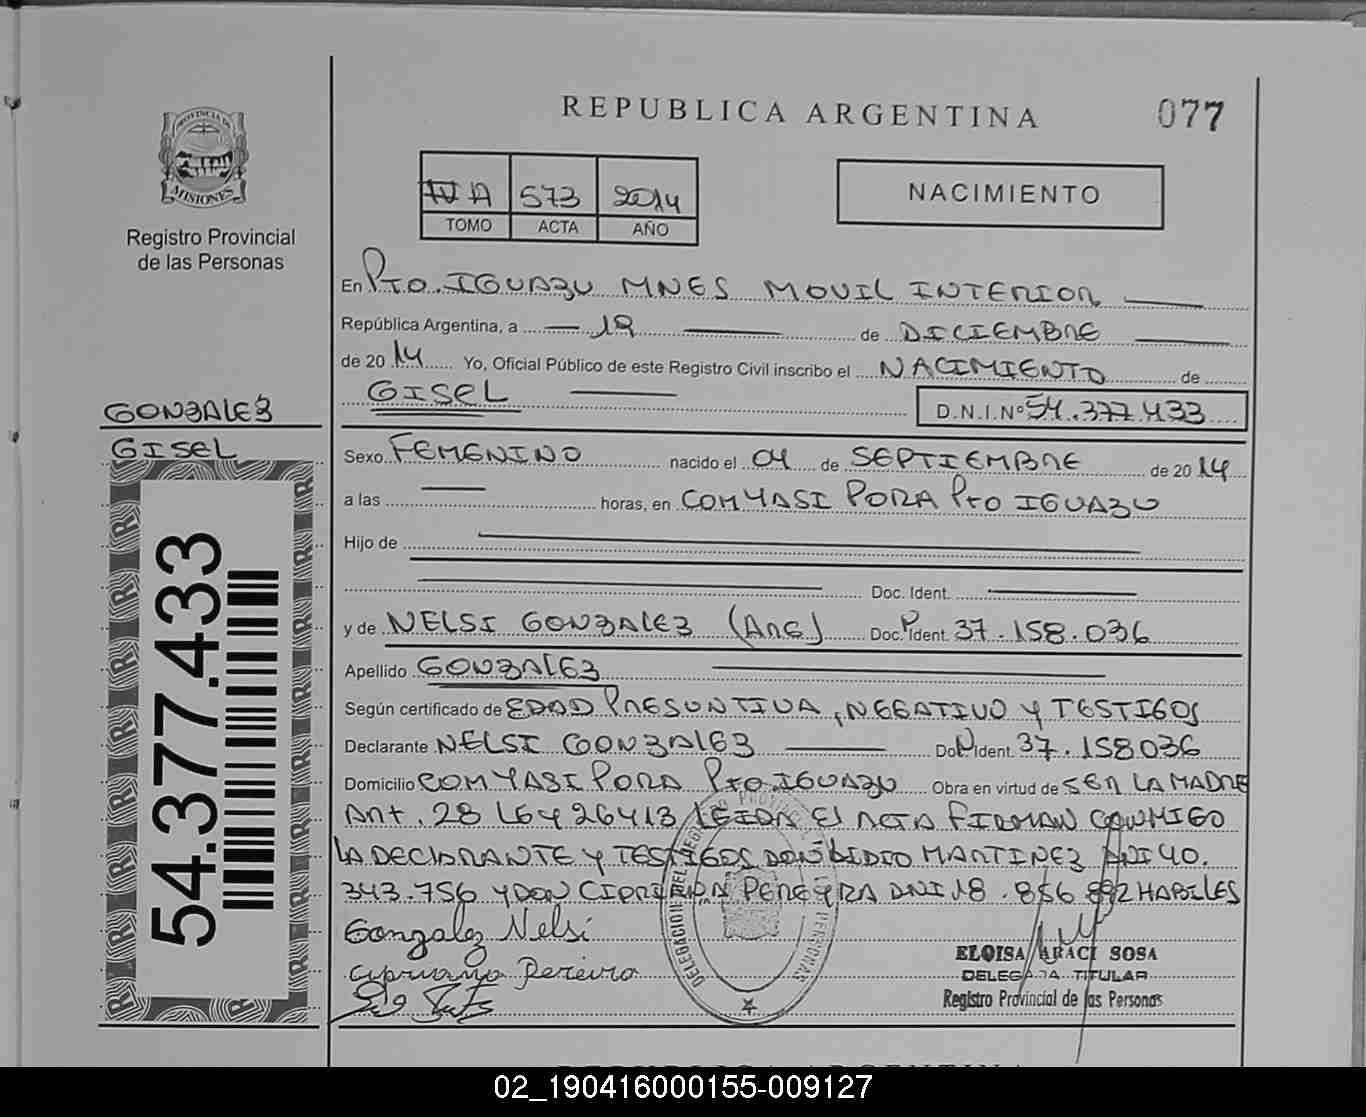 REPUBLICA ARGENTINA
077
PROVINCIA DE
MISIONES
Registro Provincial
de las Personas
IV A 573 2014
TOMO ACTA AÑO
NACIMIENTO
En Pto. IGUAZU MNES MOVIL INTERIOR
República Argentina, a 19 de DICIEMBRE
de 20 14 Yo, Oficial Público de este Registro Civil inscribo el NACIMIENTO de
GISEL
D.N.I.Nº 54.377.433
GONZALEZ
GISEL
54.377.433
Sexo FEMENINO nacido el 04 de SEPTIEMBRE de 20 14
a las horas, en COM YASI PORA Pto IGUAZU
Hijo de
Doc. Ident.
y de NELSI GONZALEZ (ARG) Doc. Ident. 37.158.036
Apellido GONZALEZ
Según certificado de EDAD PRESUNTIVA, NEGATIVO Y TESTIGOS
Declarante NELSI GONZALEZ Doc. Ident. 37.158036
Domicilio COM YASI PORA Pto IGUAZU Obra en virtud de SER LA MADRE
Art. 28 LEY 26413 LEIDA El ACTA FIRMAN CONMIGO
LA DECLARANTE Y TESTIGOS DON LIDIO MARTINEZ DNI 40.
343.756 Y DON CIPRIANA PEREYRA DNI 18.856.892 HABILES
Gonzalez Nelsi
cipriano Pereira
ELOISA ARACI SOSA
DELEGADA TITULAR
Registro Provincial de las Personas
REPUBLICA ARGENTINA
02_190416000155-009127